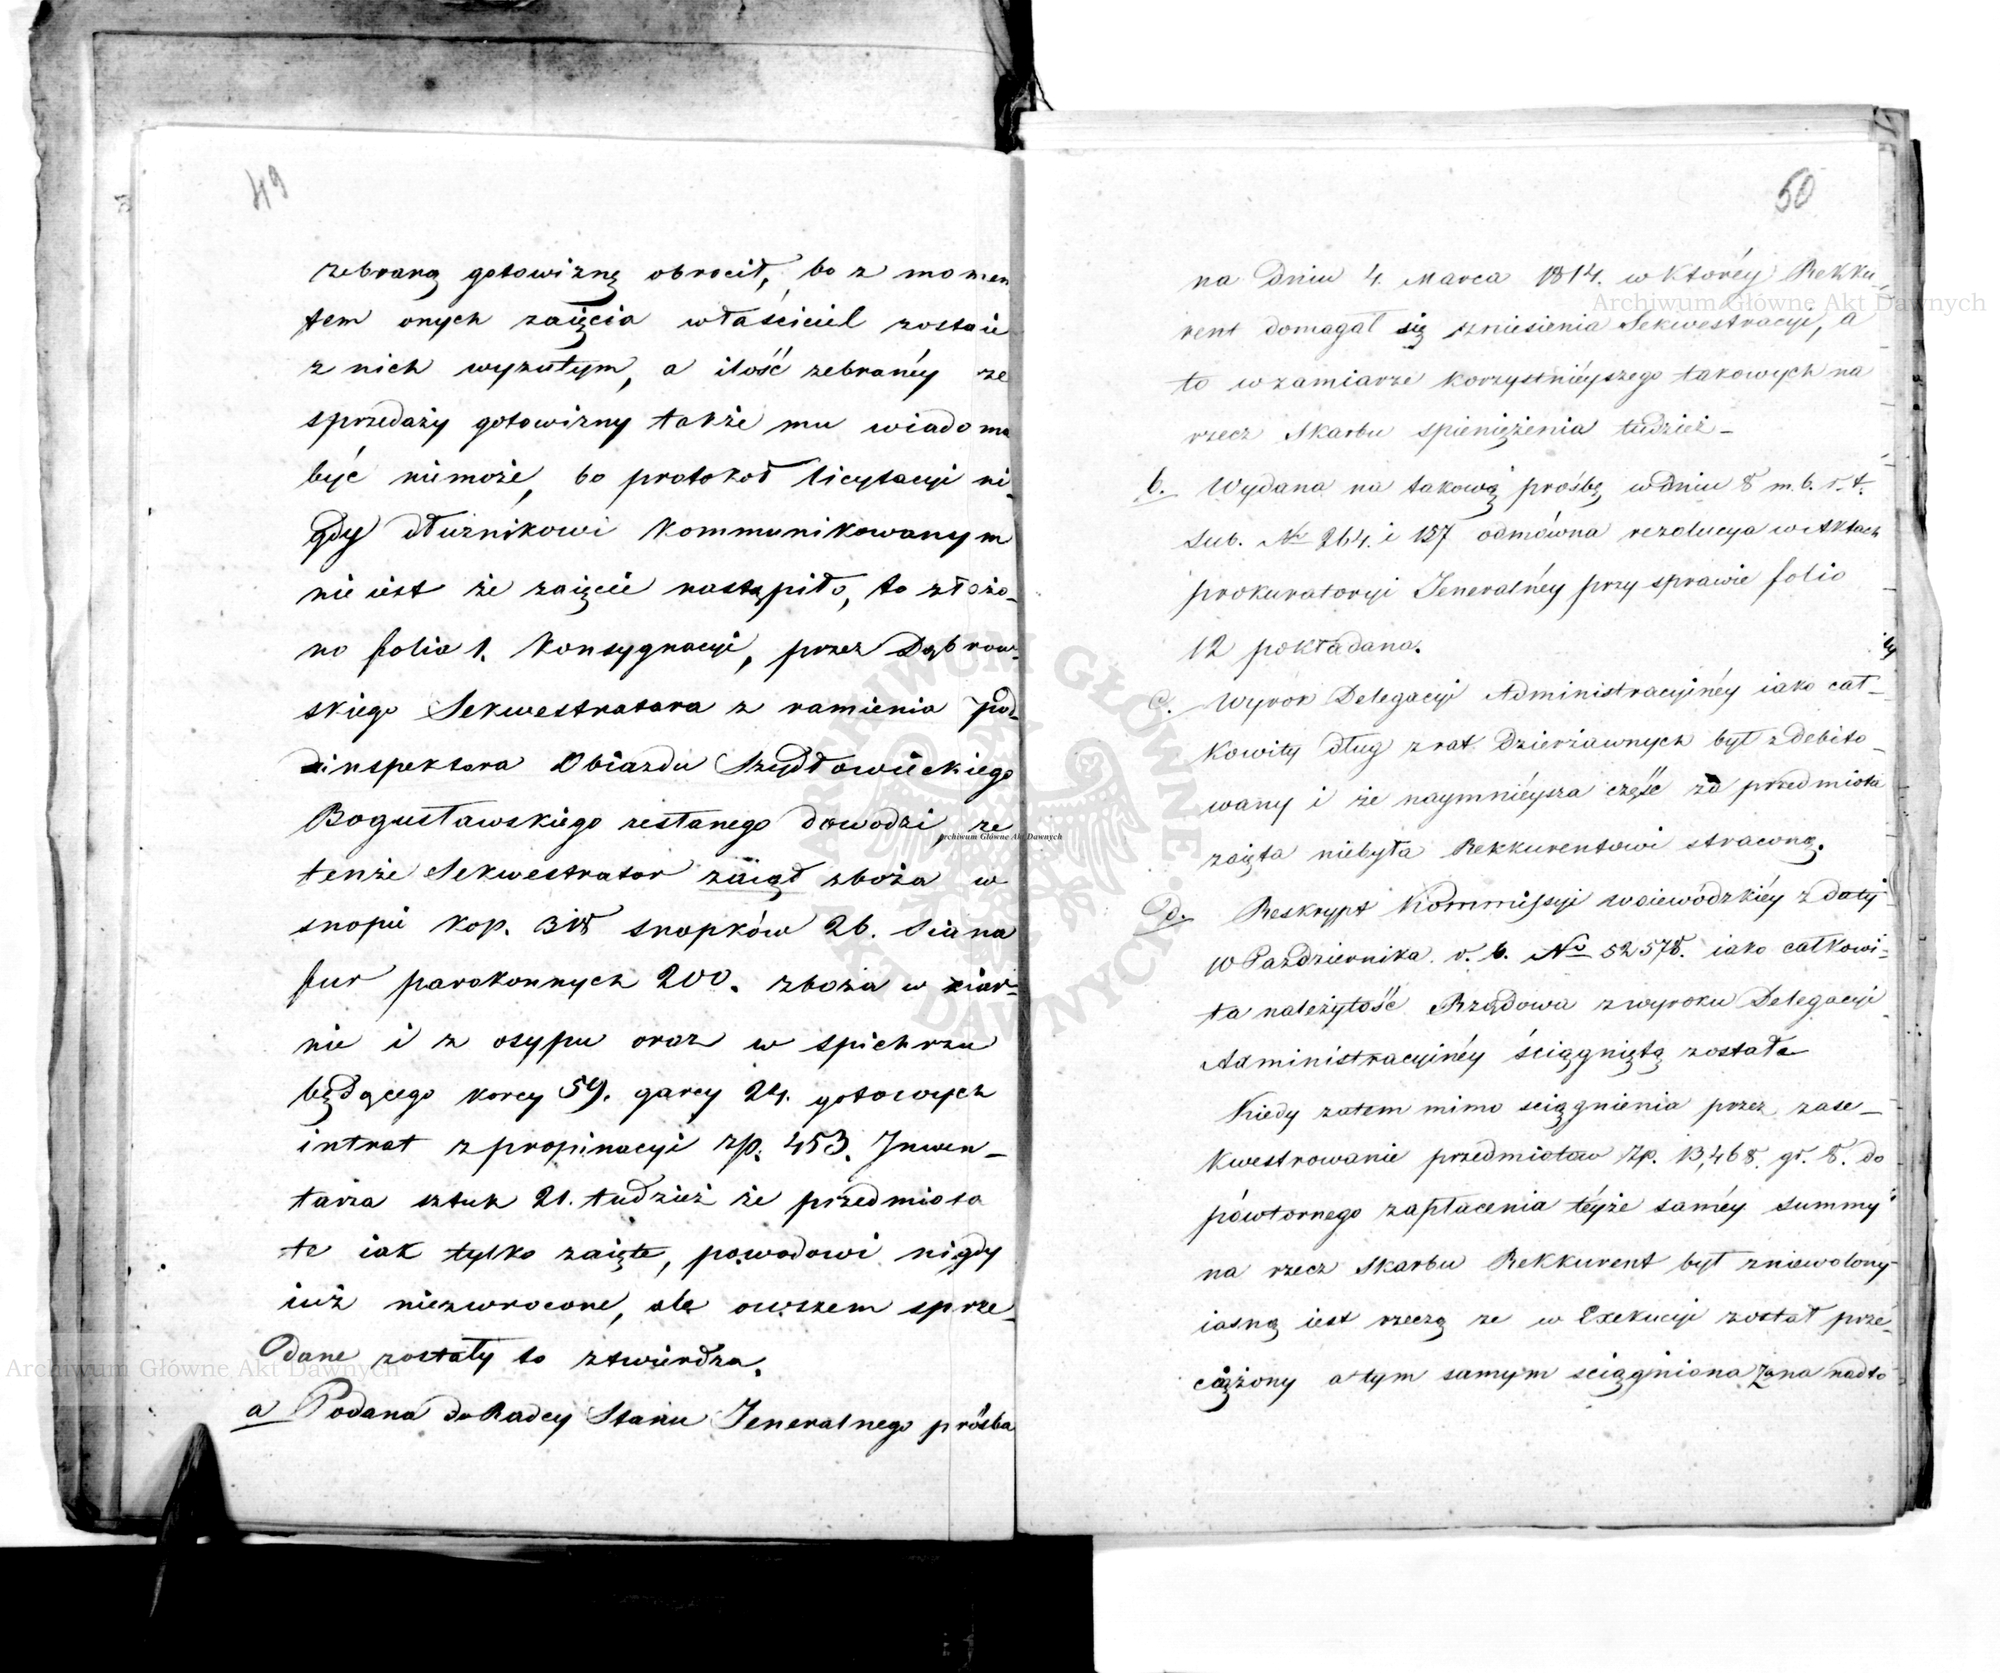 49
zebraną gotowiznę obrócił, bo z momen
tem onych zaięcia właściciel zostaie
z nich wyzutym, a ilość zebranéy ze
sprzedaży gotowizny także mu wiadoma
być niemoże, bo protokoł licytacyi ni-
gdy dłużnikowi kommunikowanym
nie iest że zaięcie nastąpiło, to złożo-
no folio 1. konsygnacyi, przez Dąbrow-
skiego Sekwestratora z ramienia pod
inspektora Obiazdu Szydłowieckiego
Bogusławskiego zesłanego dowodzi, ze
tenże Sekwestrator zaiął zboża w
snopie kop. 318 snopków 26. Siana
fur parokonnych 200. zboża w ziar-
nie i z osypu oraz w spichrzu
będącego korcy 59. garcy 24. gotowych
intrat z propinacyi zp. 453. Inwen-
tarza sztuk 21. tudzież że przedmiota
te iak tylko zaięte, powodowi nigdy
iuż niezwrocone, ale owszem sprze-
dane zostały to ztwierdza.
a Podana do Radcy Stanu Jeneralnego prośba
50
na dniu 4. Marca 1814. w któréy Rekku-
rent domagał się zniesienia Sekwestracyi, a
to w zamiarze korzystniéyszego takowych na
rzecz Skarbu spieniężenia tudzież -
b. Wydana na takową prośbę w dniu 8 m. b. r. t.
sub. No 264. i 157 odmówna rezolucya w Aktach
prokuratoryi Jeneralnéy przy sprawie folio
12 pokładana.
c. Wyrok Delegacyi Administracyinéy iako cał-
kowity dług z rat Dzierżawnych był zdebito-
wany i że naymniéysza część za przedmiota
zaięta niebyła Rekkurentowi straconą.
d. Reskrypt Kommissyi woiewódzkiéy z daty
10 Pazdziernika r. b. No 52578. iako całkowi-
ta należytość Rządowa z wyroku Delegacyi
Administracyinéy ściągniętą została
Kiedy zatem mimo sciągnienia przez zase-
kwestrowanie przedmiotow zp. 13,468. gr. 8. do
powtórnego zapłacenia téyże saméy summy
na rzecz Skarbu Rekkurent był zniewolony
iasną iest rzeczą ze w Exekucyi został prze-
ciążony a tym samym sciągniona nadto
Archiwum Główne Akt Dawnych
Archiwum Główne Akt Dawnych
Archiwum Główne Akt Dawnych
ARCHIWUM GŁÓWNE AKT DAWNYCH